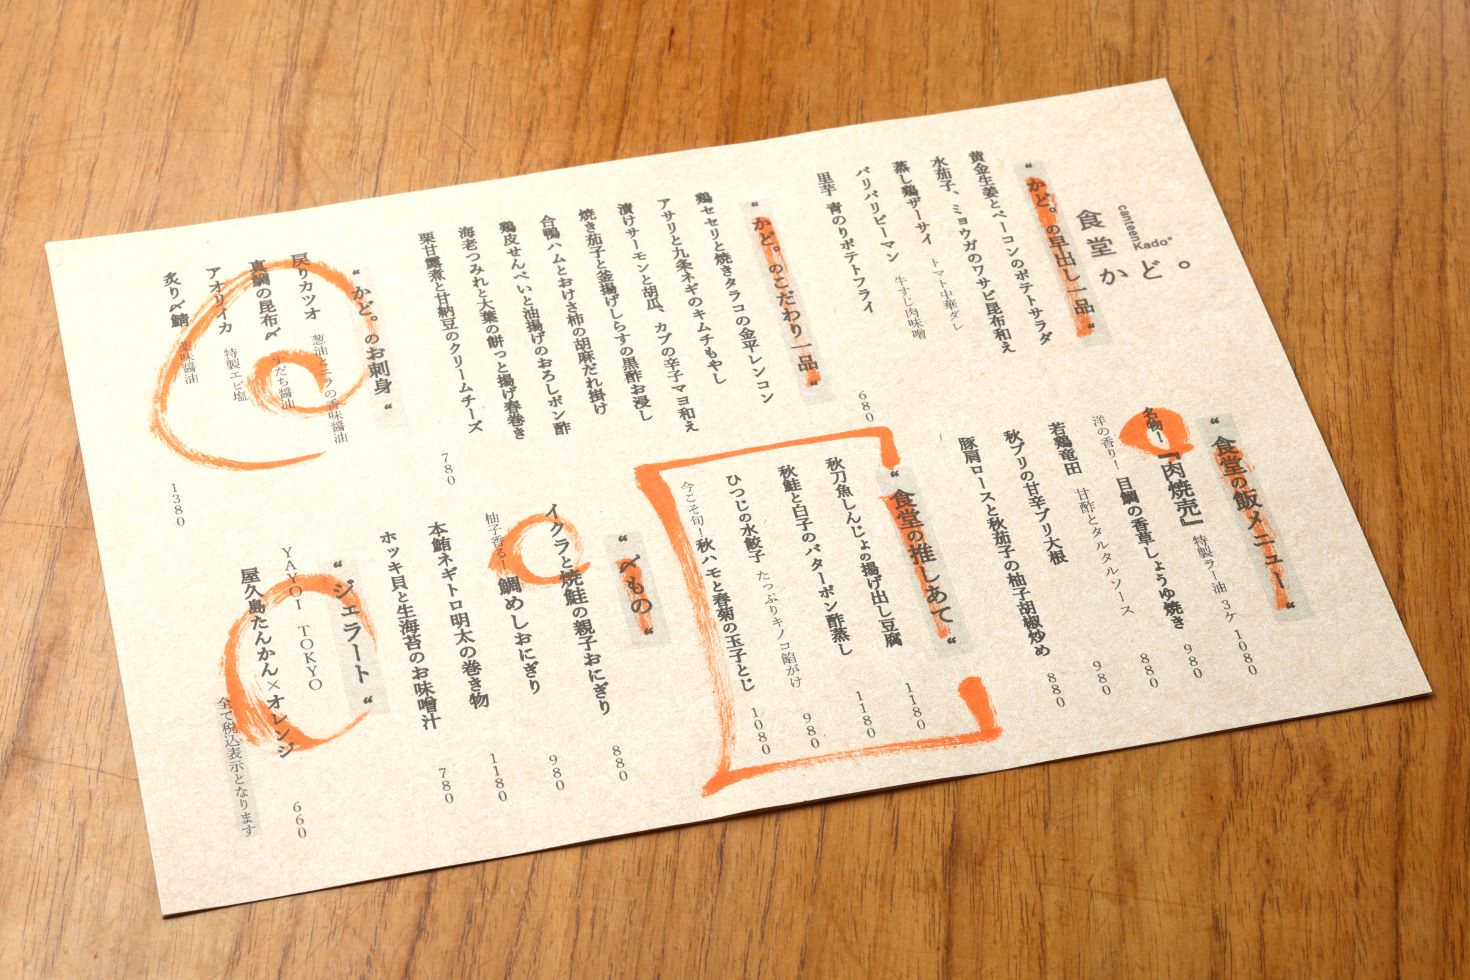 canteen Kado°
食堂かど。
“かど。の早出し一品“
黄金生姜とベーコンのポテトサラダ
水茄子、ミョウガのワサビ昆布和え
蒸し鶏ザーサイ トマト中華ダレ
パリパリピーマン 牛すじ肉味噌
里芋 青のりポテトフライ
680
“かど。のこだわり一品“
鶏セセリと焼きタラコの金平レンコン
アサリと九条ネギのキムチもやし
漬けサーモンと胡瓜、カブの辛子マヨ和え
焼き茄子と釜揚げしらすの黒酢お浸し
合鴨ハムとおけさ柿の胡麻だれ掛け
鶏皮せんべいと油揚げのおろしポン酢
海老つみれと大葉の餅っと揚げ春巻き
栗甘露煮と甘納豆のクリームチーズ
780
“かど。のお刺身“
戻りカツオ 葱油とニラの香味醤油
真鯛の昆布〆 すだち醤油
アオリイカ 特製エビ塩
炙り〆鯖 薬味醤油
1380
“食堂の飯メニュー“
名物!『肉焼売』 特製ラー油 3ケ 1080
洋の香り!目鯛の香草しょうゆ焼き 980
若鶏竜田 甘酢とタルタルソース 880
秋ブリの甘辛ブリ大根 980
豚肩ロースと秋茄子の柚子胡椒炒め 880
“食堂の推しあて“
秋刀魚しんじょの揚げ出し豆腐 1180
秋鮭と白子のバターポン酢蒸し 1180
ひつじの水餃子 たっぷりキノコ餡がけ 980
今こそ旬!秋ハモと春菊の玉子とじ 1080
“〆もの“
イクラと焼鮭の親子おにぎり 880
柚子香る!鯛めしおにぎり 980
本鮪ネギトロ明太の巻き物 1180
ホッキ貝と生海苔のお味噌汁 780
“ジェラート“
YAYOI TOKYO
屋久島たんかん×オレンジ 660
全て税込表示となります